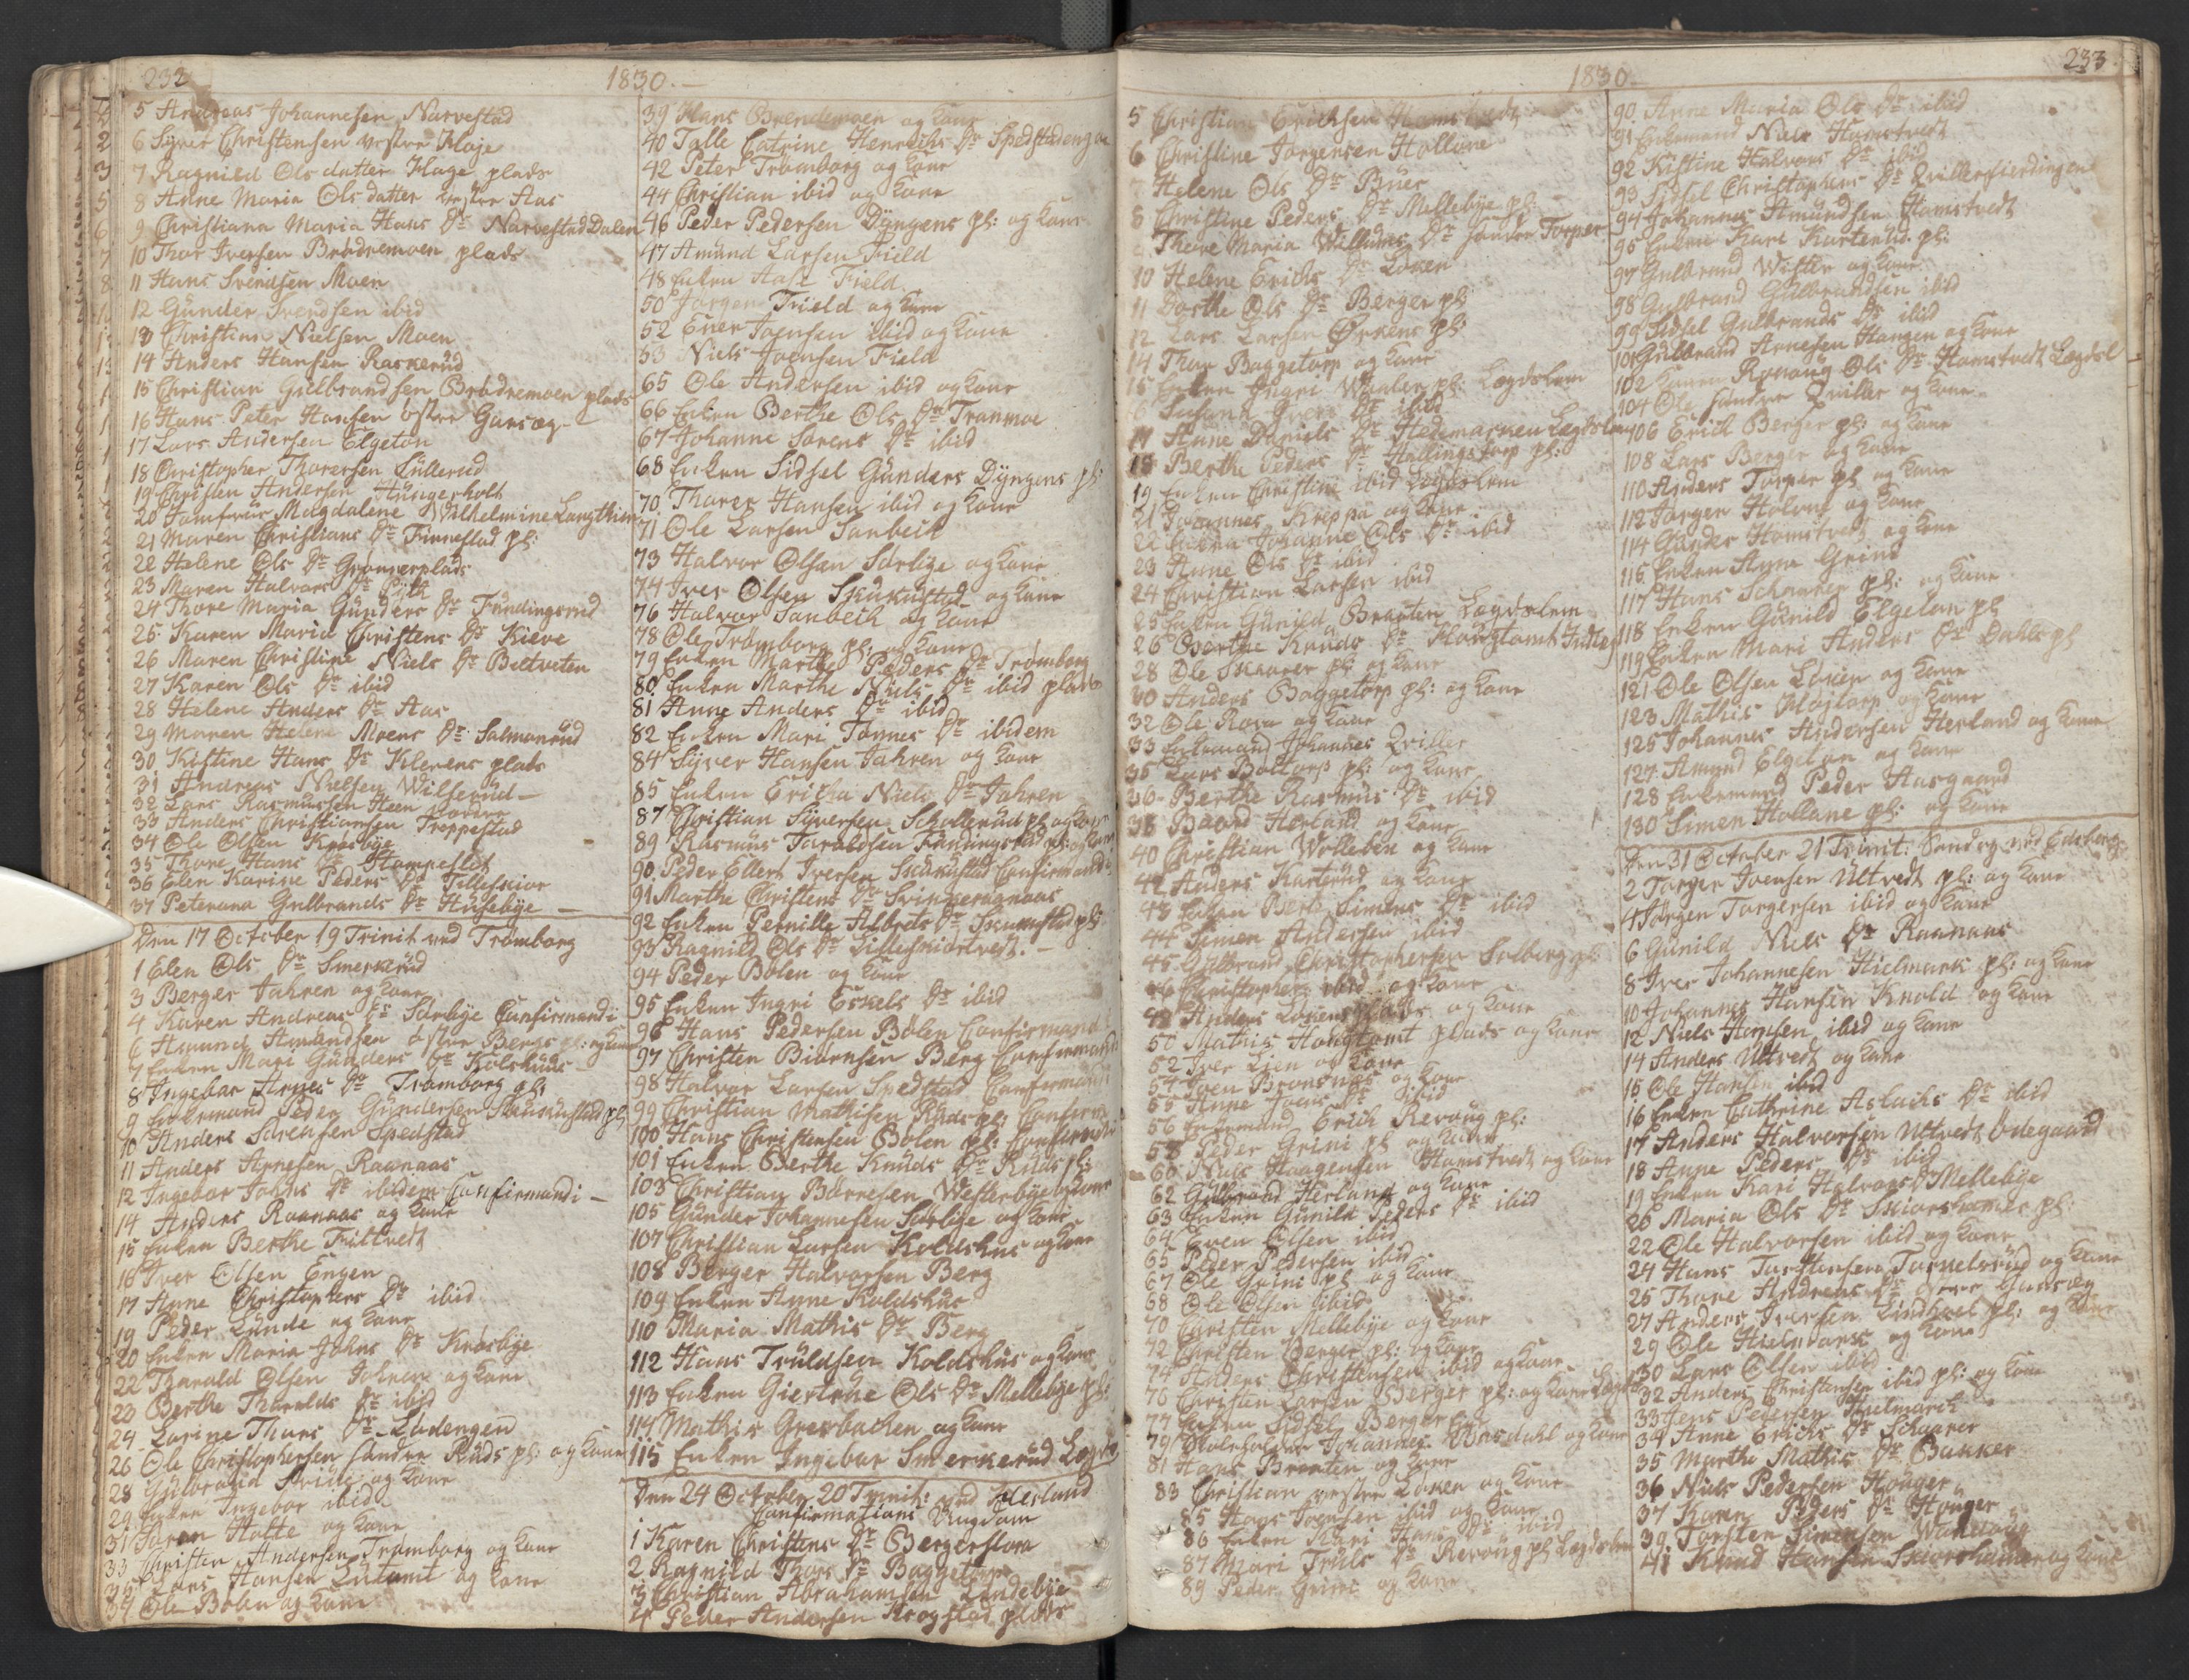 232
1830.
5 Andreas Johannesen Narvestad
6 Syver Christensen vestre Klaje
7 Ragnild Ols datter Klage plads
8 Anne Maria Ols datter vestre Aas
9 Christiana Maria Hans Dr Narvestad Dalen
10 Thor Iversen Brødremoen plads
11 Hans Svendsen Moen
12 Günder Svendsen ibid
13 Christian Nielsen Moen
14 Anders Hansen Raskerud
15 Christian Gulbrandsen Brødremoen plads
16 Hans Peter Hansen østre Gansøg
17 Lars Andersen Elgetøn
18 Christopher Thoresen Lüllerud
19 Christen Andersen Hüngerholt
20 Jomfrue Magdalene Wilhelmine
21 Maren Christians Dr Finnestad pl:
22 Helene Ols Dr Grønnerplads
23 Maren Halvors Dr
24 Thore Maria Günders Dr Fundingsrud
25 Karen Maria Christens Dr Kieve
26 Maren Christine Niels Dr Bietveten
27 Karen Ols Dr ibid
28 Helene Anders Dr Aas
29 Maren Helene Moens Dr Salmonrüd
30 Kistine Hans Dr Klevens plads
31 Andreas Nielsen Wilserüd
32 Lars Rasmussen Heen
33 Anders Christiansen Treppestad
34 Ole Olsen Krosbye
35 Thore Hans Dr
36 Elen Karine Peders Dr Tillefskior
37 Peterana Gulbrands Dr Husebye
Den 17 October 19 Trinit ved Trømborg
1 Elen Ols Dr Smerkerüd
3 Berger Jahren og kone
4 Karen Andreas Dr Sørbye Confirmandi
6 Amund Amundsen østre Bergs pl: og kone
7 Enken Mari Günders Dr Kolshuus
8 Ingebor Arnes Dr Trømborg pl:
9 Enkemand Peder Gündersen Skukustad pl:
10 Anders Sørensen Spedstad
11 Anders Arnesen Raanaas
12 Ingebor Johns Dr ibidem Confirmandi
14 Anders Raanaas og kone
15 Enken Berthe Fittvedt
16 Iver Olsen Engen
17 Anne Christophers Dr ibid
19 Peder Lunde og kone
20 Enken Maria Johns Dr Krosbye
22 Tharald Olsen Jahren og kone
23 Berthe Tharalds Dr ibid
24 Karine Thors Dr Ladengen
26 Ole Christophersen søndre Ruds pl: og kone
28 Gulbrand og kone
29 Enken Ingebor ibid
31 Søren Holte og kone
33 Christen Andersen Trømborg og kone
35 Lars Hansen og kone
37 Ole Bølen og kone
39 Hans Brendemoen og kone
40 Talle Catrine Henrichs Dr Spedstadengen
42 Peter Trømborg og kone
44 Christian ibid og kone
46 Peder Pedersen Dyngens pl: og kone
47 Amund Larsen Field
48 Enken Aase Field
50 Jørgen Field og kone
52 Ener Joensen ibid og kone
53 Niels Joensen Field
65 Ole Andersen ibid og kone
66 Enken Berthe Ols Dr Tranmoe
67 Johanne Sørens Dr ibid
68 Enken Sidsel Günders Dyngens pl:
70 Thorer Hansen ibid og kone
71 Ole Larsen Sanbech
73 Halvor Olsen Sørbye og kone
74 Iver Olsen Skukustad og kone
76 Halvor Sanbech og kone
78 Ole Trømborg pl: og kone
79 Enken Marthe Peders Dr Trømborg
80 Enken Marthe Niels Dr ibid plads
81 Anne Anders Dr ibid
82 Enken Mari Tønnes Dr ibidem
84 Syver Hansen Jahren og kone
85 Enken Ericka Niels Dr Jahren
87 Christian Syversen Schollerud pl: og kone
89 Rasmus Taraldsen pl: og kone
90 Peder Ellert Iversen Skukustad Confirmand
91 Marthe Christens Dr Svingeraanaas
92 Enken Pernille Albrets Dr Skukustad pl:
93 Ragnild Ols Dr Tillefskiortvedt
94 Peder Bølen og kone
95 Enken Ingri Eskels Dr ibid
96 Hans Pedersen Bølen Confirmand
97 Christen Biørnsen Berg Confirmand
98 Halvor Larsen Spedstad Confirmand
99 Christian Mathisen Ruds pl: Confirm
100 Hans Christensen Bølen pl: Confirmandi
101 Enken Berthe Knuds Dr Ruds pl:
103 Christian Børresen Westerbye og kone
105 Günder Johannesen Sørbye og kone
107 Christian Larsen Koldshus og kone
108 Berger Halvorsen Berg
109 Enken Anne Koldshus
110 Maria Mathis Dr Berg
112 Hans Trüldsen Koldshus og kone
113 Enken Giertrue Ols Dr Mellebye pl:
114 Mathis Grevbachen og kone
115 Enken Ingebor Smerkerud
Den 24 October 20 Trinit: ved Herland
Confirmations Ungdom
1 Karen Christens Dr Bergerflora
2 Ragnild Thors Dr Baggetorp
3 Christian Abrahamsen Lundebye
4 Peder Andersen Krogstad plads
1830
233
5 Christian Erichsen Homstvedt
6 Christine Jørgensen Hollene
7 Helene Ols Dr Büer
8 Christine Peders Dr Mellebye pl:
9 Theve Maria Willums Dr søndre Torper
10 Helene Erichs Dr Løken
11 Dorthe Ols Dr Berger pl:
12 Lars Larsen Ørkens pl:
14 Thor Baggetorp og kone
15 Enken Ingri pl: Lægdslem
16 Ivers Dr ibid
17 Anne Daniels Dr Hedemarken Lægdslem
18 Berthe Peders Dr Hallingstorp pl:
19 Enken Christine ibid Lægdslem
21 Johannes Kreppa og kone
22 Enken Johanne Ols Dr ibid
23 Anne Ols Dr ibid
24 Christian Larsen ibid
25 Enken Gunild Braaten Lægdslem
26 Berthe Knuds Dr Hougtomt
28 Ole Skaarer pl: og kone
30 Anders Baggetorp pl: og kone
32 Ole Rosn og kone
33 Enkemand Johannes Qviller
35 Lars Baltorp pl: og kone
36 Berthe Rasmus Dr ibid
38 Baard Herland og kone
40 Christian Wolleben og kone
42 Anders Karterud og kone
43 Enken Berte Simens Dr ibid
44 Simen Andersen ibid
45 Gulbrand Christophersen Solberg pl:
46 Christopher ibid og kone
48 Anders Løkens plads og kone
50 Mathis Hougtomt plads og kone
52 Iver Lien og kone
54 Joen Bronsnes og kone
55 Anne Joens Dr ibid
56 Enkemand Erich Revoug pl:
58 Peder Grini pl: og kone
60 Niels Haagensen Homstvedt og kone
62 Gulbrand Herland og kone
63 Enken Gunild Peders Dr ibid
64 Even Olsen ibid
65 Peder Pedersen ibid
67 Ole Grini pl: og kone
68 Ole Olsen ibid
70 Christen Mellebye og kone
72 Christen Berger pl: og kone
74 Anders Christensen ibid og kone
76 Christen Larsen Berger pl: og kone
77 Enken Sidsel Berger
79 Johannes Onsdahl og kone
81 Hans Braaten og kone
83 Christian vestre Løken og kone
85 Hans Joensen ibid og kone
86 Enken Kari Hans Dr ibid
87 Mari Truls Dr Revoug pl: Lægdslem
89 Peder Grini og kone
90 Anne Maria Ols Dr ibid
91 Enkemand Niels Homstvedt
92 Kistine Halvors Dr ibid
93 Sidsel Christophers Dr Qvillerfierdingen
94 Johannes Amundsen Homstvedt
95 Enken Kari Karterud pl:
97 Gulbrand Wister og kone
98 Gulbrand Gulbrandsen ibid
99 Sidsel Gulbrands Dr ibid
101 Gulbrand Arnesen Haugen og kone
102 Konen Ronoug Ols Dr Homstvedt Lægdsl
104 Ole søndre Qviller og kone
106 Erich Berger pl: og kone
108 Lars Berger og kone
110 Anders Torper pl: og kone
112 Jørgen Holene og kone
114 Günder Homstvedt og kone
116 Enken Anne Grini
117 Hans Schaarer pl: og kone
118 Enken Gunild Elgetøn pl
119 Enken Mari Anders Dr Dahls pl
121 Ole Olsen Løken og kone
123 Mathis Kløjtorp og kone
125 Johannes Andersen Herland og kone
127 Amund Elgetøn og kone
128 Enkemand Peder Aasgaard
130 Simen Hollane pl: og kone
Den 31 October 21 Trinit: Søndag ved Eidsberg
2 Torger Joensen Ultvedt pl: og kone
4 Jørgen Torgersen ibid og kone
6 Gunild Niels Dr Raanaas
8 Iver Johannesen Hielmark pl: og kone
10 Johannes Hansen Knold og kone
12 Niels Hansen ibid og kone
14 Anders Ultvedt og kone
15 Ole Hansen ibid
16 Enken Cathrine Aslachs Dr ibid
17 Anders Halvorsen Ultvedt Ødegaard
18 Anne Peders Dr ibid
19 Enken Kari Halvors Dr Mellebye
20 Maria Ols Dr Skiørshamer pl:
22 Ole Halvorsen ibid og kone
24 Hans Torstensen og kone
25 Thore Andreas Dr østre Gansøg
27 Anders Iversen Lindhoel pl: og kone
29 Ole Hielmark og kone
30 Lars Olsen ibid
32 Anders Christensen ibid pl: og kone
33 Jens Pedersen Hielmark
34 Anne Erichs Dr Schaarer
35 Marthe Mathis Dr Bakker
36 Niels Pedersen Houger
37 Karen Peders Dr Houger
39 Torsten Simensen
41 Knud Hansen Skiørshamer og kone